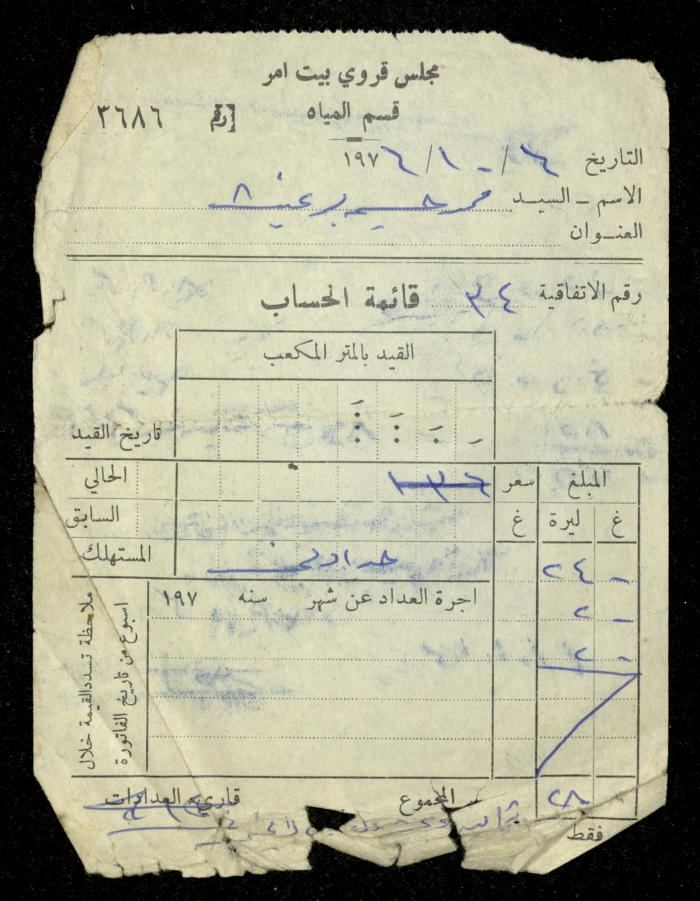 مجلس قروي بيت امر
قسم المياه
رقم ٣٦٨٦
التاريخ ٦/١٠/١٩٧٦
الاسم ـ السيد محمد حسين
العنوان
رقم الاتفاقية ٣٤
قائمة الحساب
القيد بالمتر المكعب
تاريخ القيد
المبلغ سعر ١٣٦ الحالي
غ ليرة غ السابق
- ٢٤ المستهلك
- ٢ اجرة العداد عن شهر سنه ١٩٧
- ٢
ملاحظة تسدد القيمة خلال
اسبوع من تاريخ الفاتورة
- ٢٨ المجموع قاريء العدادات
فقط